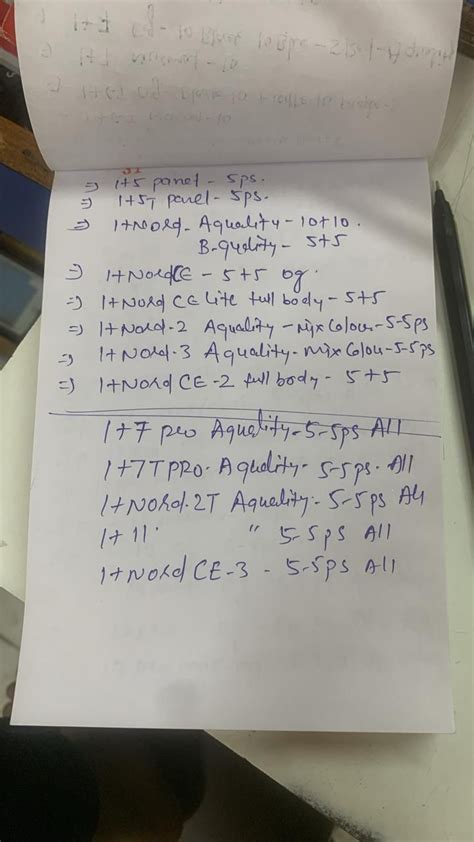 ⇒ 1+5 panel - 5ps.
⇒ 1+5T panel - 5ps.
⇒ 1+Nord - Aquality - 10+10.
B-quality - 5+5
⇒ 1+Nord CE - 5+5 og.
⇒ 1+Nord CE lite full body - 5+5
⇒ 1+Nord-2 Aquality - mix Colour - 5-5ps
⇒ 1+Nord-3 Aquality - mix Colou - 5-5ps
⇒ 1+Nord CE-2 full body - 5+5
1+7 pro Aquality - 5-5ps All
1+7T PRO. Aquality - 5-5ps. All
1+Nord.2T Aquality - 5-5ps All
1+11. " 5-5ps All
1+Nord CE-3 - 5-5ps All